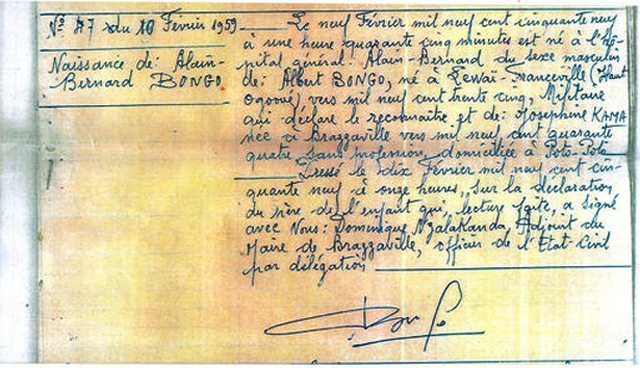 Nº 47 du 10 Février 1959
Naissance de: Alain-
Bernard BONGO
Le neuf Février mil neuf cent cinquante neuf
à une heure quarante cinq minutes est né à l'hô-
pital général: Alain-Bernard du sexe masculin
de: Albert BONGO, né à Lewaï-Franceville (Haut
Ogooué) vers mil neuf cent trente cinq, Militaire
qui déclare le reconnaître et de: Josephine KAMA
née à Brazzaville vers mil neuf cent quarante
quatre, sans profession, domiciliée à Poto-Poto
Dressé le dix Février mil neuf cent cin-
quante neuf à onze heures, sur la déclaration
du père de l'enfant qui, lecture faite, a signé
avec Nous: Dominique NzalaKanda, Adjoint au
Maire de Brazzaville, officier de l'Etat-Civil
par délégation